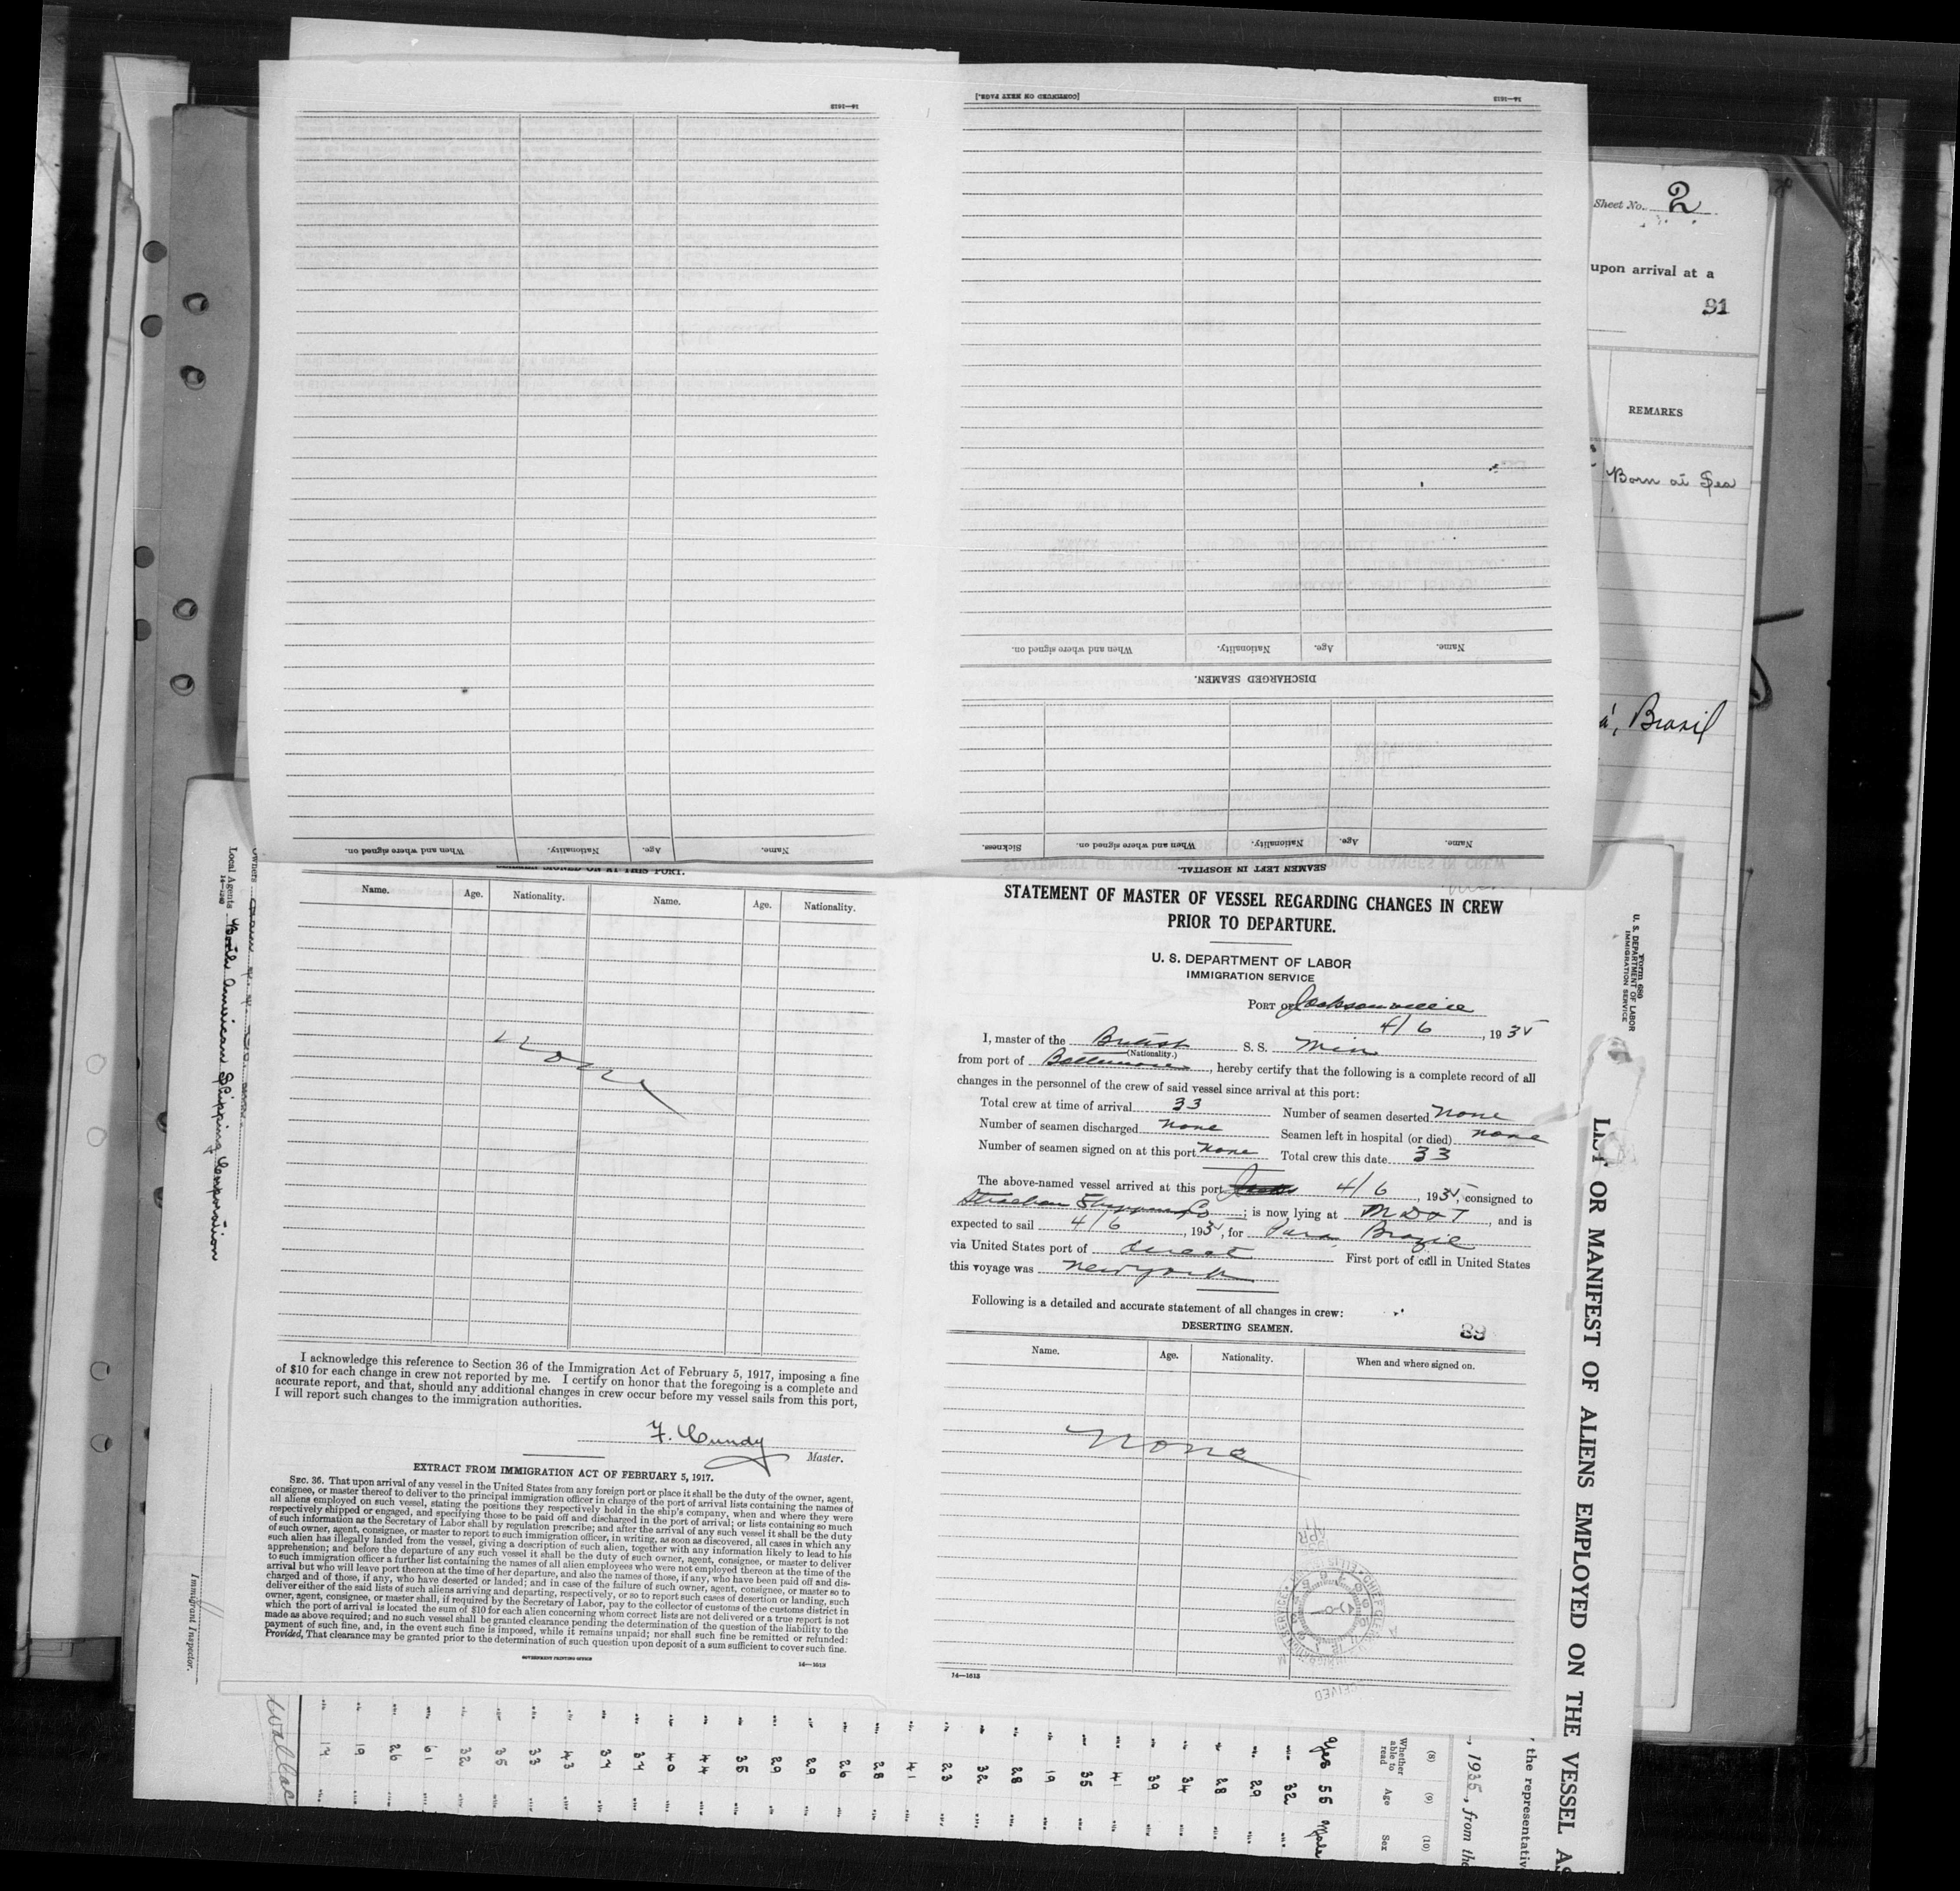 16—1613
[CONTINUED ON NEXT PAGE.]
16—1613
When and where signed on.
Nationality.
Age.
Name.
DISCHARGED SEAMEN.
When and where signed on.
Nationality.
Age.
Name.
Sickness.
When and where signed on.
Nationality.
Age.
Name.
SEAMEN LEFT IN HOSPITAL.
SEAMEN SIGNED ON AT THIS PORT.
Name.
Age.
Nationality.
Name.
Age.
Nationality.
None
I acknowledge this reference to Section 36 of the Immigration Act of February 5, 1917, imposing a fine
of $10 for each change in crew not reported by me. I certify on honor that the foregoing is a complete and
accurate report, and that, should any additional changes in crew occur before my vessel sails from this port,
I will report such changes to the immigration authorities.
F. Cundy
Master.
EXTRACT FROM IMMIGRATION ACT OF FEBRUARY 5, 1917.
SEC. 36. That upon arrival of any vessel in the United States from any foreign port or place it shall be the duty of the owner, agent,
consignee, or master thereof to deliver to the principal immigration officer in charge of the port of arrival lists containing the names of
all aliens employed on such vessel, stating the positions they respectively hold in the ship's company, when and where they were
respectively shipped or engaged, and specifying those to be paid off and discharged in the port of arrival; or lists containing so much
of such information as the Secretary of Labor shall by regulation prescribe; and after the arrival of any such vessel it shall be the duty
of such owner, agent, consignee, or master to report to such immigration officer, in writing, as soon as discovered, all cases in which any
such alien has illegally landed from the vessel, giving a description of such alien, together with any information likely to lead to his
apprehension; and before the departure of any such vessel it shall be the duty of such owner, agent, consignee, or master to deliver
to such immigration officer a further list containing the names of all alien employees who were not employed thereon at the time of the
arrival but who will leave port thereon at the time of her departure, and also the names of those, if any, who have been paid off and dis-
charged and of those, if any, who have deserted or landed; and in case of the failure of such owner, agent, consignee, or master so to
deliver either of the said lists of such aliens arriving and departing, respectively, or so to report such cases of desertion or landing, such
owner, agent, consignee, or master shall, if required by the Secretary of Labor, pay to the collector of customs of the customs district in
which the port of arrival is located the sum of $10 for each alien concerning whom correct lists are not delivered or a true report is not
made as above required; and no such vessel shall be granted clearance pending the determination of the question of the liability to the
payment of such fine, and, in the event such fine is imposed, while it remains unpaid; nor shall such fine be remitted or refunded:
Provided, That clearance may be granted prior to the determination of such question upon deposit of a sum sufficient to cover such fine.
GOVERNMENT PRINTING OFFICE
14—1613
STATEMENT OF MASTER OF VESSEL REGARDING CHANGES IN CREW
PRIOR TO DEPARTURE.
U. S. DEPARTMENT OF LABOR
IMMIGRATION SERVICE
PORT OF Jacksonville
4/6, 1935
I, master of the British S. S. Min
(Nationality.)
from port of Baltimore, hereby certify that the following is a complete record of all
changes in the personnel of the crew of said vessel since arrival at this port:
Total crew at time of arrival 33 Number of seamen deserted None
Number of seamen discharged None Seamen left in hospital (or died) None
Number of seamen signed on at this port None Total crew this date 33
The above-named vessel arrived at this port 4/6, 1935, consigned to
Strachan Shipping Co; is now lying at M D & T, and is
expected to sail 4/6, 1935, for Para Brazil
via United States port of direct First port of call in United States
this voyage was New york
Following is a detailed and accurate statement of all changes in crew:
89
DESERTING SEAMEN.
Name.
Age.
Nationality.
When and where signed on.
None
14—1613
Sheet No. 2
upon arrival at a
91
REMARKS
Born at Sea
á, Brasil
Form 680
U. S. DEPARTMENT OF LABOR
IMMIGRATION SERVICE
LIST OR MANIFEST OF ALIENS EMPLOYED ON THE VESSEL AS
, the representativ
, 1935, from the
(8) (9) (10)
Whether able to read Age Sex
Yes 55 Male
32
29
28
34
39
41
35
19
28
32
23
41
28
26
29
29
35
44
40
34
37
43
33
35
32
61
26
19
17
Owners
Local Agents North American Shipping Corporation
14—1240
Immigrant Inspector.